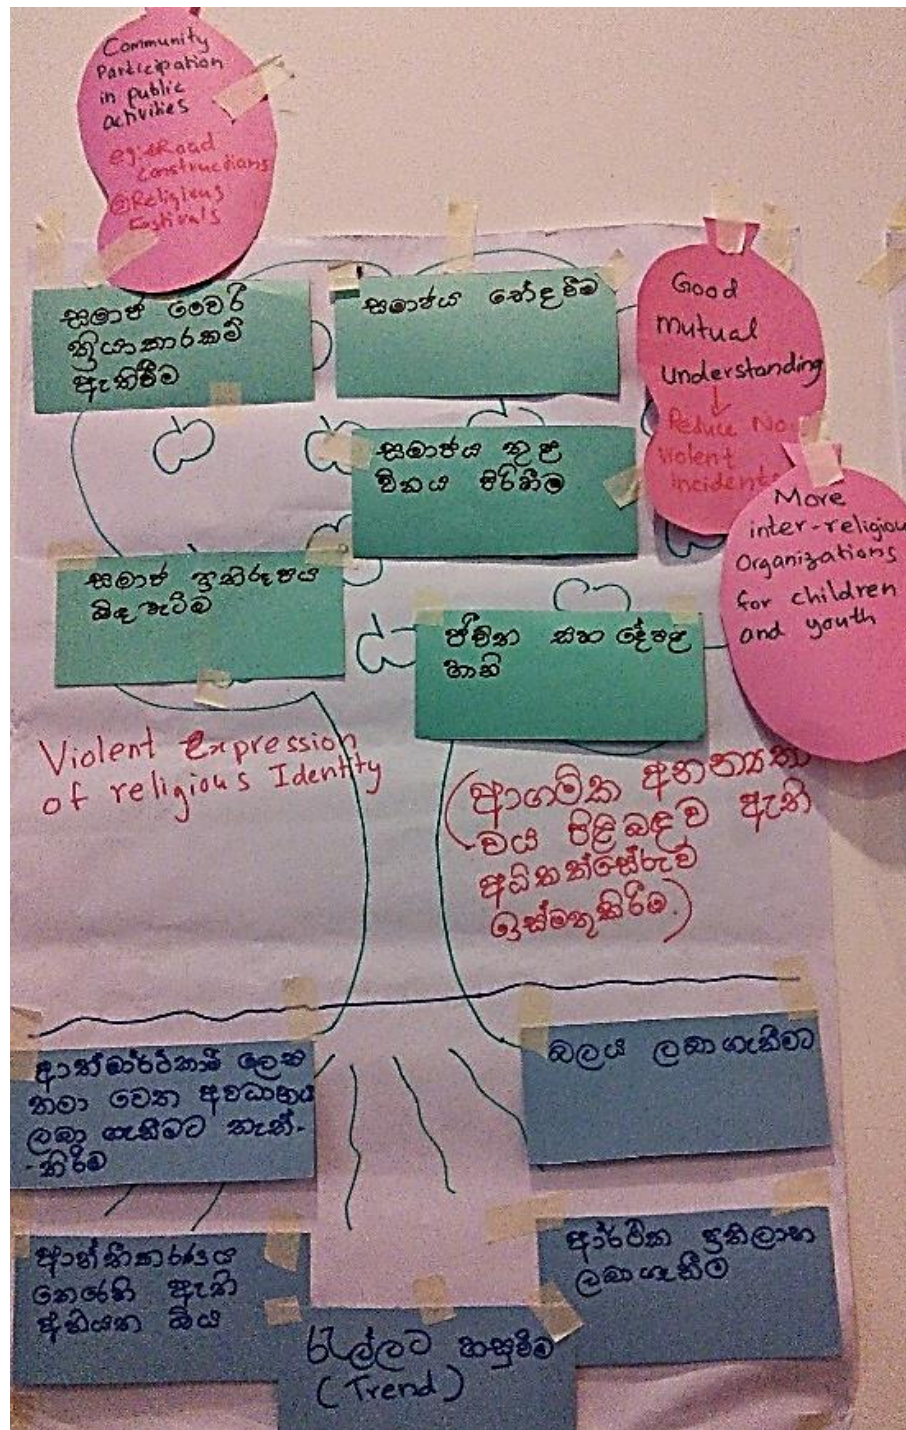 Community
Participation
in public
activities
eg: Road
Constructions
Religious
Festivals
සමාජ වෛරී
ක්‍රියාකාරකම්
ඇතිවීම
සමාජය භේදවීම
Good
Mutual
Understanding
Reduce No.
Violent
incidents
සමාජය තුළ
විනය පිරිහීම
More
inter-religiou
Organizations
for children
and youth
සමාජ ප්‍රතිරූපය
බිඳ වැටීම
ජීවිත සහ දේපළ
හානි
Violent Expression
of religious Identity
(ආගමික අනන්‍යතා
වය පිළිබඳව ඇති
අධිතත්සේරුව
ඉස්මතුකිරීම.)
ආත්මාර්ථකාමී ලෙස
තමා වෙත අවධානය
ලබා ගැනීමට තැත්-
-කිරීම
බලය ලබාගැනීමට
ආන්තීකරණය
කෙරෙහි ඇති
ආර්ථික ප්‍රතිලාභ
ලබාගැනීම
රැල්ලට හසුවීම
(Trend)